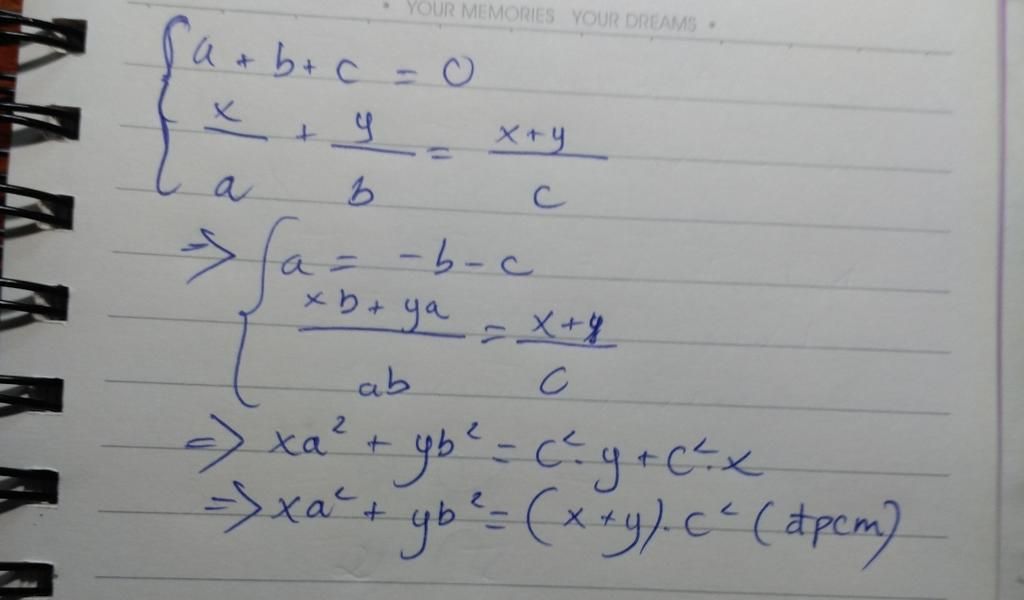 • YOUR MEMORIES YOUR DREAMS •
a + b + c = 0
x/a + y/b = (x+y)/c
=> a = -b - c
(xb + ya)/ab = (x+y)/c
=> xa² + yb² = c².y + c².x
=> xa² + yb² = (x+y).c² (đpcm)